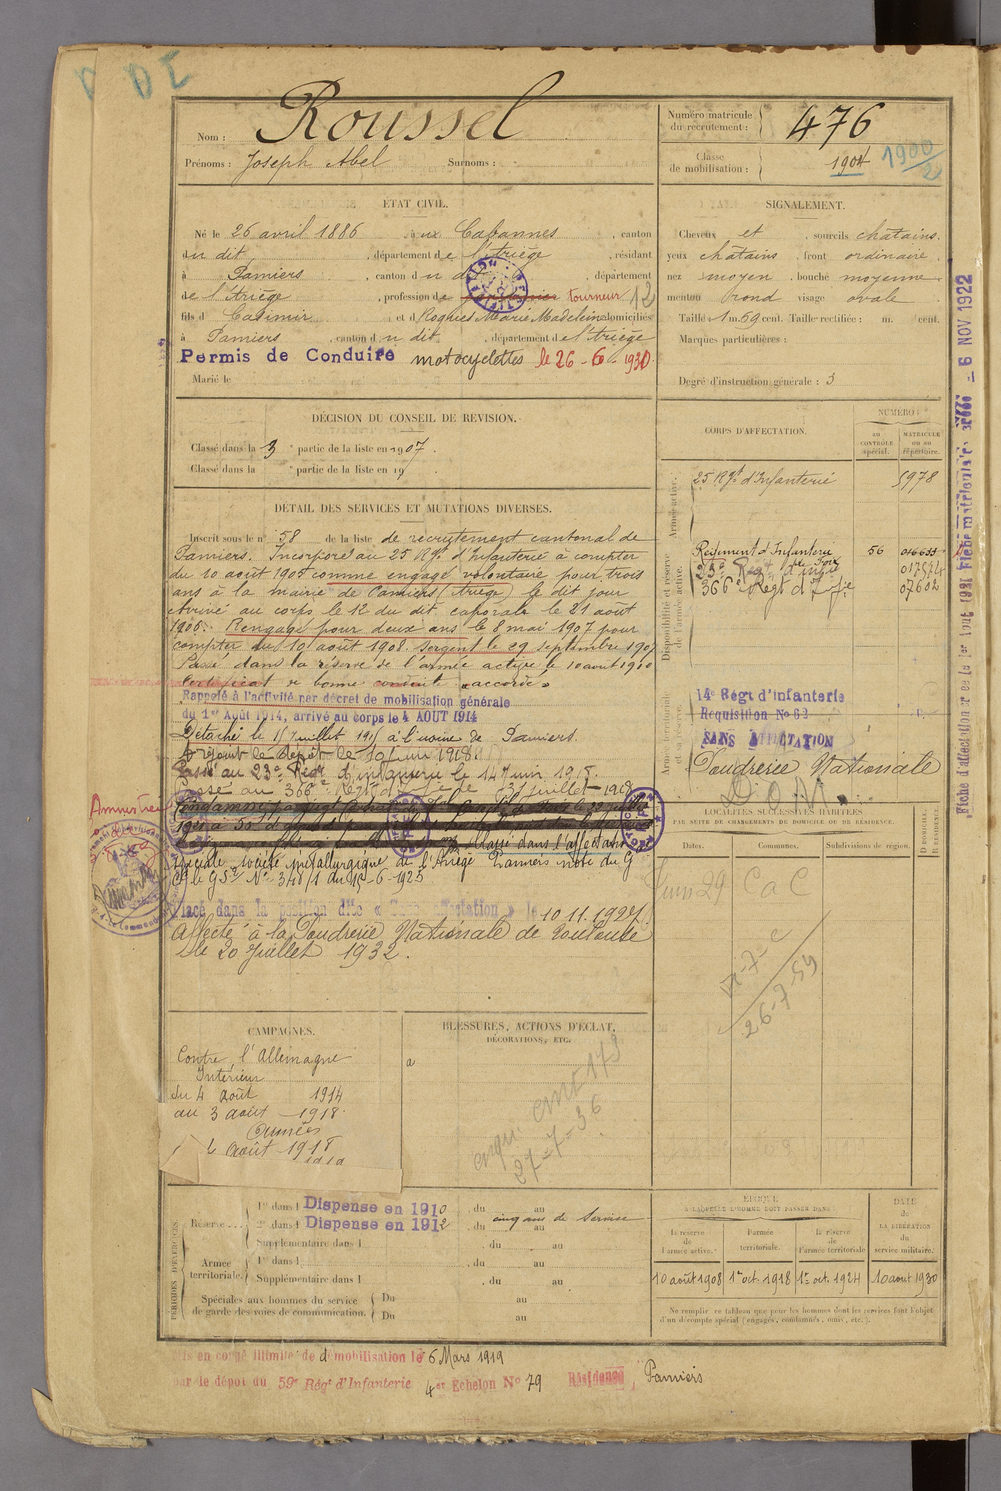 Nom : Roussel
Prénoms : Joseph Abel Surnoms :
Numéro matricule du recrutement : 476
Classe de mobilisation : 1904 1900/2
ÉTAT CIVIL.
Né le 26 avril 1886, à ux Cabannes, canton
du dit, département de l'Ariège, résidant
à Pamiers, canton du dit, département
de l'Ariège, profession de tourneur 12
fils de Casimir et de Marie Madeleine domiciliés
à Pamiers, canton du dit, département de l'Ariège
Permis de Conduire motocyclettes le 26-6-1930
Marié le
SIGNALEMENT.
Cheveux et sourcils châtains.
yeux châtains, front ordinaire
nez moyen, bouche moyenne
menton rond visage ovale
Taille : 1 m. 69 cent. Taille rectifiée : m. cent.
Marques particulières :
Degré d'instruction générale : 3
DÉCISION DU CONSEIL DE REVISION.
Classé dans la 3 partie de la liste en 1907.
Classé dans la partie de la liste en 19
CORPS D'AFFECTATION.
NUMÉRO
au CONTRÔLE spécial.
MATRICULE ou au répertoire.
Armée active.
25 Rgt d'Infanterie 5978
Disponibilité et réserve de l'armée active.
Régiment d'Infanterie 56
23e Régt d'Infie
366e Régt d'Infie 07602
Armée territoriale et sa réserve.
14e Régt d'infanterie
Réquisition No 62
SANS AFFECTATION
Poudrerie Nationale
DÉTAIL DES SERVICES ET MUTATIONS DIVERSES.
Inscrit sous le n° 58 de la liste de recrutement cantonal de
Pamiers. Incorporé au 25 Rgt d'Infanterie à compter
du 10 août 1905 comme engagé volontaire pour trois
ans à la mairie de Pamiers (Ariège) le dit jour
Arrivé au corps le 12 du dit caporal le 21 août
1906. Rengagé pour deux ans le 8 mai 1907 pour
compter du 10 août 1908. Sergent le 29 septembre 1907
Passé dans la réserve de l'armée active le 10 août 1910
Certificat de bonne conduite "accordé"
Rappelé à l'activité par décret de mobilisation générale
du 1er Août 1914, arrivé au corps le 4 AOUT 1914
Détaché le 15 Juillet 1915 à l'usine de Pamiers.
A rejoint le dépôt le 10 juin 1918.
Passé au 23e Régt d'infanterie le 14 juin 1918.
Passé au 366e Régt d'Infie le 31 juillet 1918
Classé dans l'affectation
spéciale, société métallurgique de l'Ariège Pamiers note du G
du 15-6-1925
Placé dans la position dite « Sans affectation » le 10.11.1927.
Affecté à la Poudrerie Nationale de Toulouse
le 20 Juillet 1932.
LOCALITÉS SUCCESSIVES HABITÉES
PAR SUITE DE CHANGEMENTS DE DOMICILE OU DE RÉSIDENCE.
Dates. Communes. Subdivisions de région. D DOMICILE. R RÉSIDENCE.
Juin 29 CaC
26-7-54
CAMPAGNES.
Contre l'Allemagne
Intérieur
du 4 août 1914
au 3 août 1918.
Armées
4 août 1918
1919
BLESSURES, ACTIONS D'ÉCLAT,
DÉCORATIONS, ETC.
a
27-7-36
PÉRIODES D'EXERCICES.
Réserve....
1re dans l Dispense en 1910, du au
2e dans l Dispense en 1912, du au
cinq ans de service
Supplémentaire dans l, du au
Armée territoriale.
1re dans l, du au
Supplémentaire dans l, du au
Spéciales aux hommes du service de garde des voies de communication.
Du au
Du au
ÉPOQUE
À LAQUELLE L'HOMME DOIT PASSER DANS :
la réserve de l'armée active.
l'armée territoriale.
la réserve de l'armée territoriale
DATE de LA LIBÉRATION du service militaire.
10 août 1908 1er oct. 1918 1er oct. 1924 10 août 1930
Ne remplir ce tableau que pour les hommes dont les services font l'objet
d'un décompte spécial (engagés, condamnés, omis, etc.).
Mis en congé illimité de démobilisation le 6 Mars 1919
par le dépôt du 59e Régt d'Infanterie 4er Echelon No 79 Résidence, Pamiers